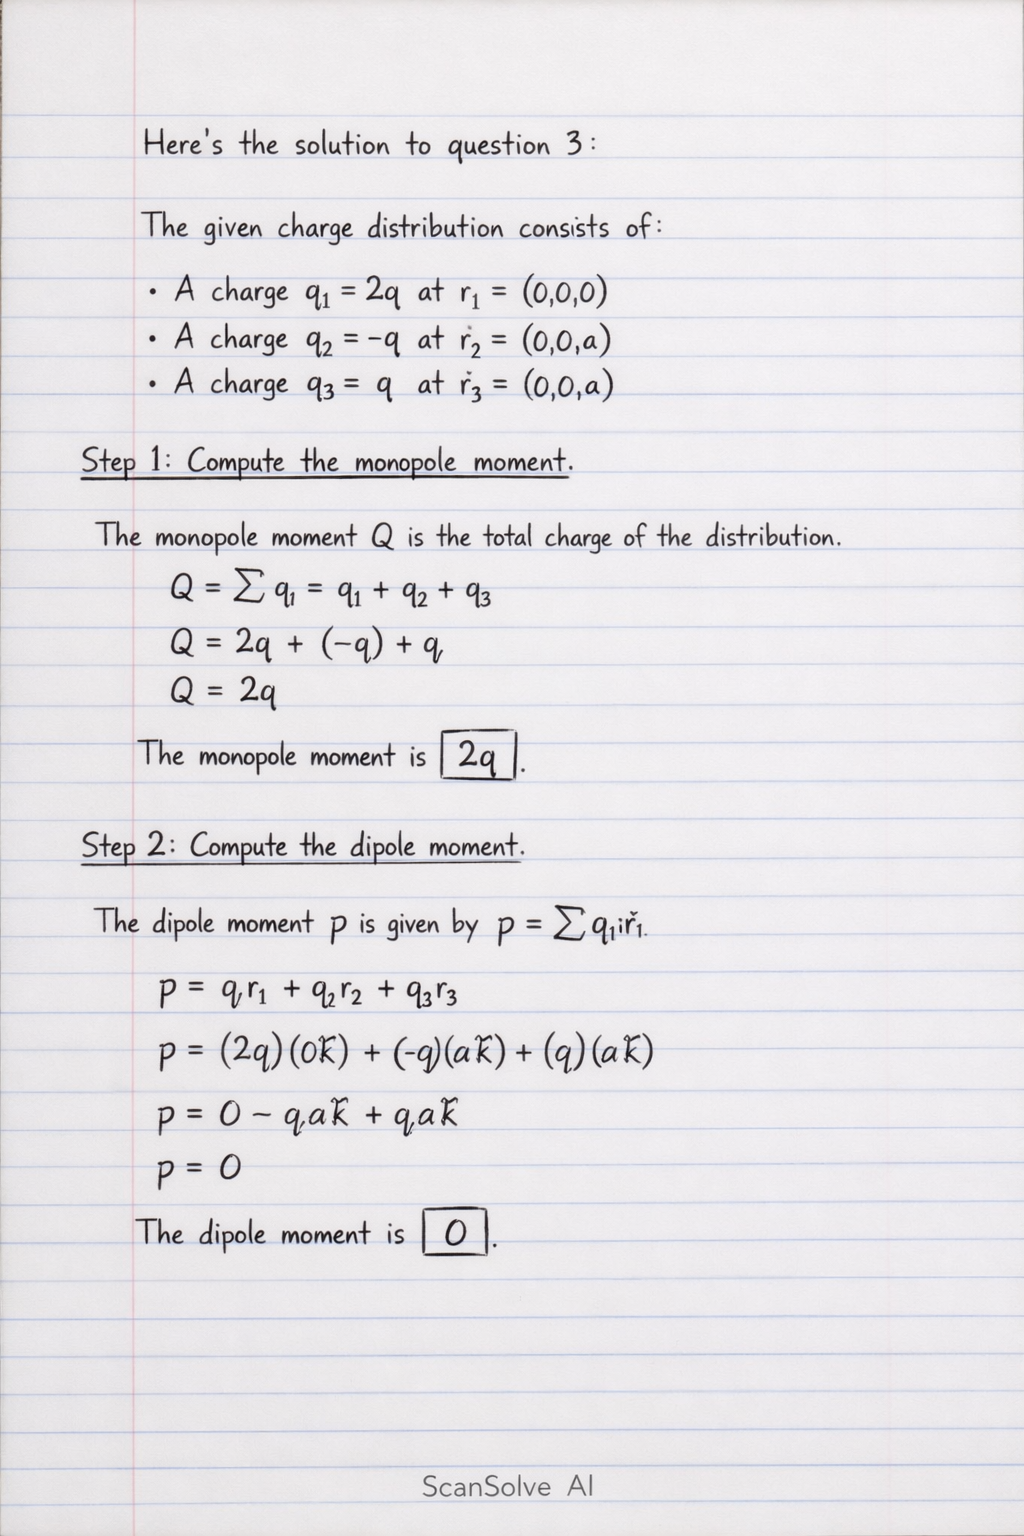 Here's the solution to question 3:
The given charge distribution consists of:
• A charge q₁ = 2q at r₁ = (0,0,0)
• A charge q₂ = -q at ṙ₂ = (0,0,a)
• A charge q₃ = q at ř₃ = (0,0,a)
Step 1: Compute the monopole moment.
The monopole moment Q is the total charge of the distribution.
Q = ∑ q₁ = q₁ + q₂ + q₃
Q = 2q + (-q) + q
Q = 2q
The monopole moment is 2q.
Step 2: Compute the dipole moment.
The dipole moment p is given by p = ∑ q₁iř₁.
p = q,r₁ + q₂r₂ + q₃r₃
p = (2q)(0k̄) + (-q)(ak̄) + (q)(ak̄)
p = 0 - q,ak̄ + q,ak̄
p = 0
The dipole moment is 0.
ScanSolve AI